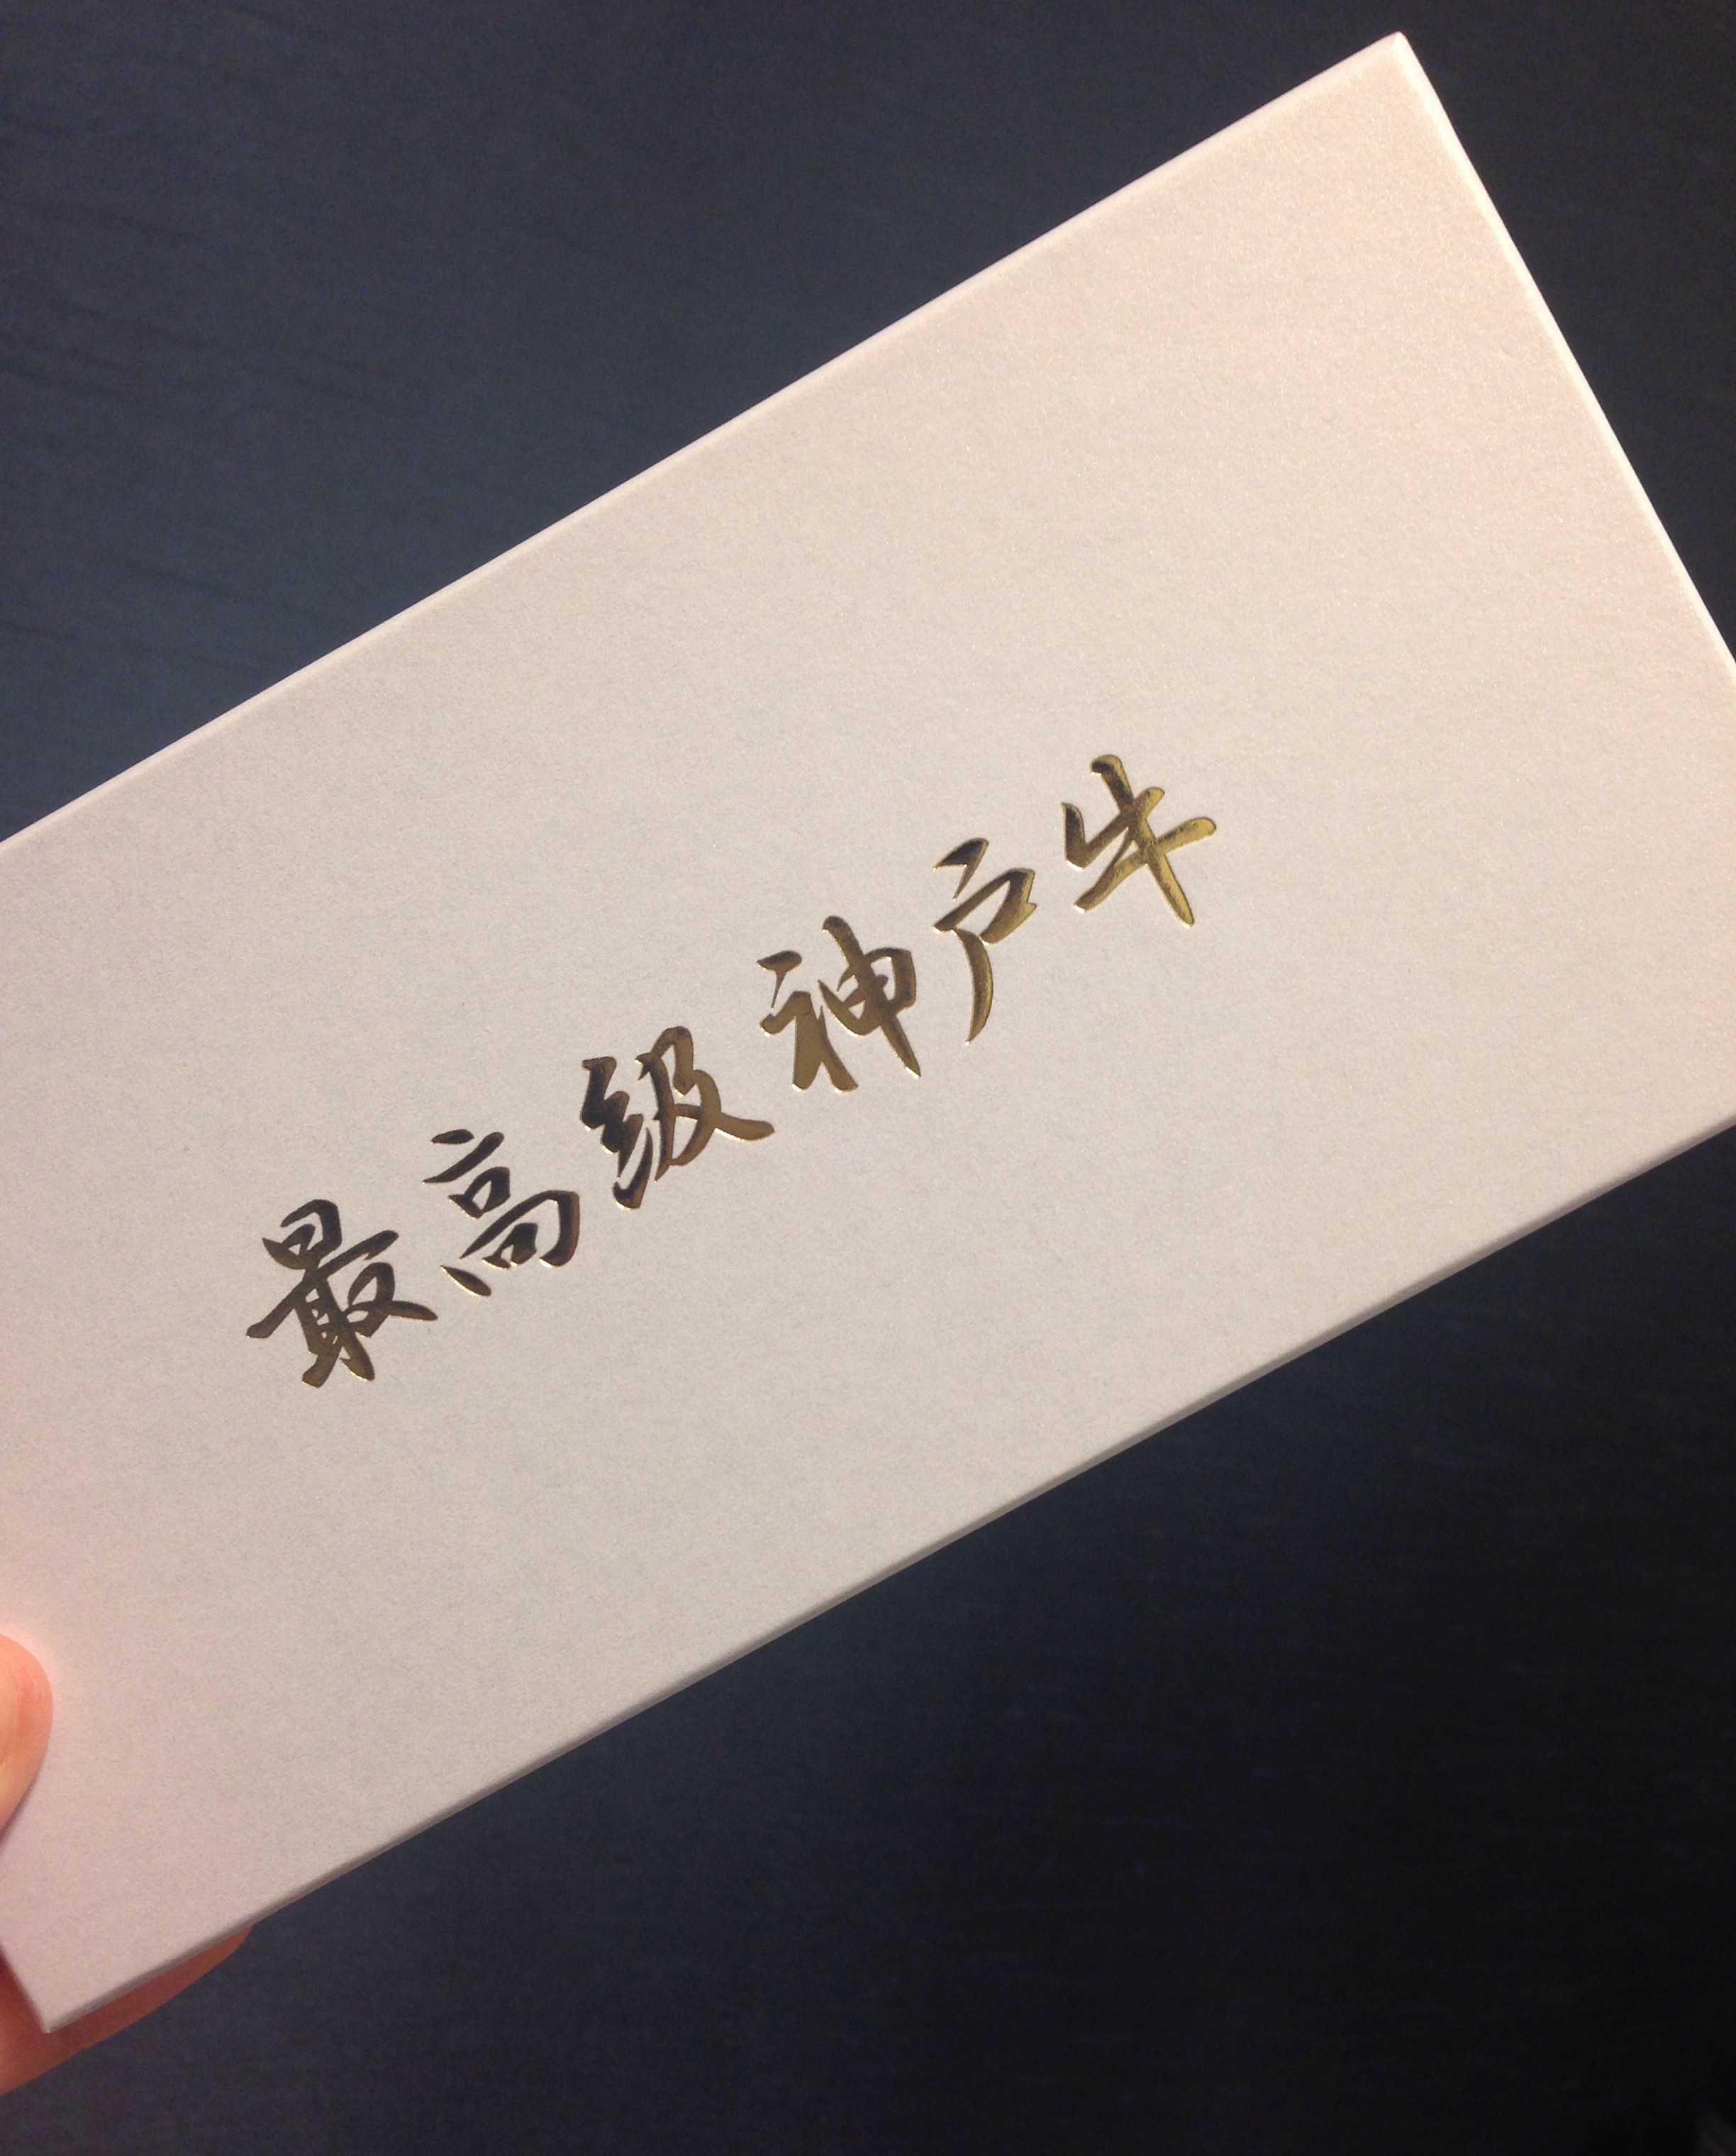 最高級神戸牛